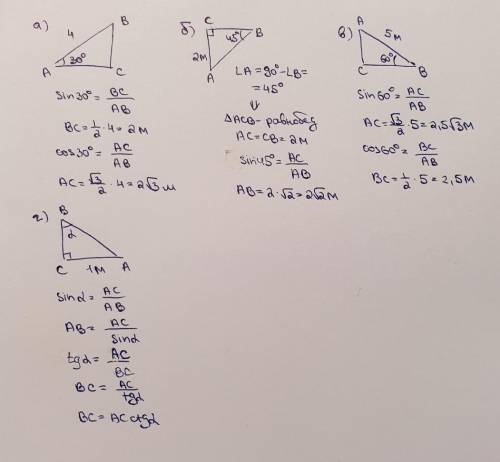 а)
B
4
30°
A
C
sin30°= BC/AB
BC=1/2·4=2м
cos30°= AC/AB
AC=√3/2·4=2√3м
б)
C
45°
B
2м
A
LA=90°-LB=
=45°
⇓
ΔACB-равнобед
AC=CB=2м
sin45°=AC/AB
AB=2·√2=2√2м
в)
A
5м
60°
C
B
sin60°=AC/AB
AC=√3/2·5=2,5√3м
cos60°=BC/AB
BC=1/2·5=2,5м
г)
B
α
C
1м
A
sinα=AC/AB
AB=AC/sinα
tgα=AC/BC
BC=AC/tgα
BC=AC ctgα